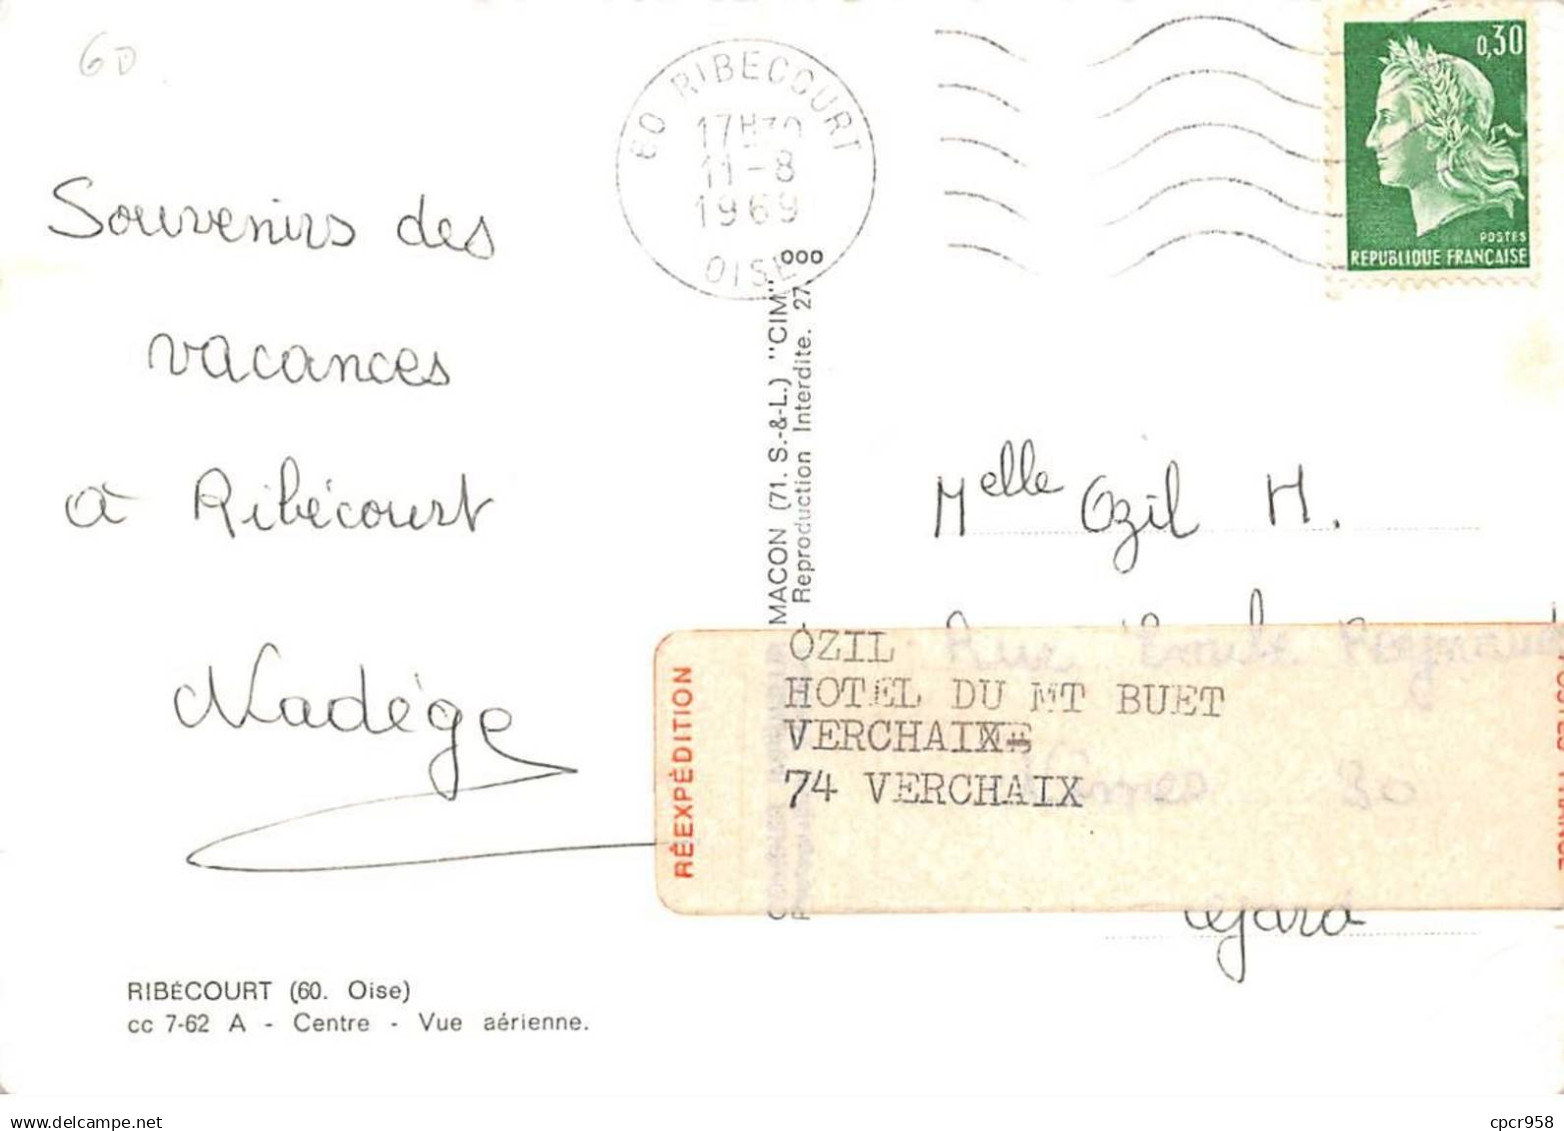 60
60 RIBECOURT
17H30
11-8
1969
OISE
0,30
POSTES
REPUBLIQUE FRANÇAISE
Souvenirs des
vacances
à Ribécourt
Nadège
MACON (71. S.-&-L.) "CIM"
Reproduction Interdite. 27 000
Melle Ozil M.
Rue Reynaud
30
Gard
RÉEXPÉDITION
OZIL
HOTEL DU MT BUET
VERCHAIX
74 VERCHAIX
RIBÉCOURT (60. Oise)
cc 7-62 A - Centre - Vue aérienne.
www.delcampe.net
cpcr958